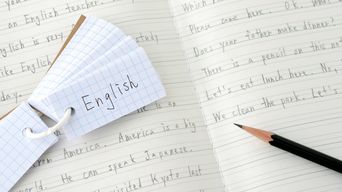 English teacher.
English is very
like English
day.
English
America. America is a big
He can speak Japanese.
visited Kyoto last
Please come here. OK.
Does your father make dinner?
There is a pencil on this no
Let's eat lunch here. N
We clean the park. Let's